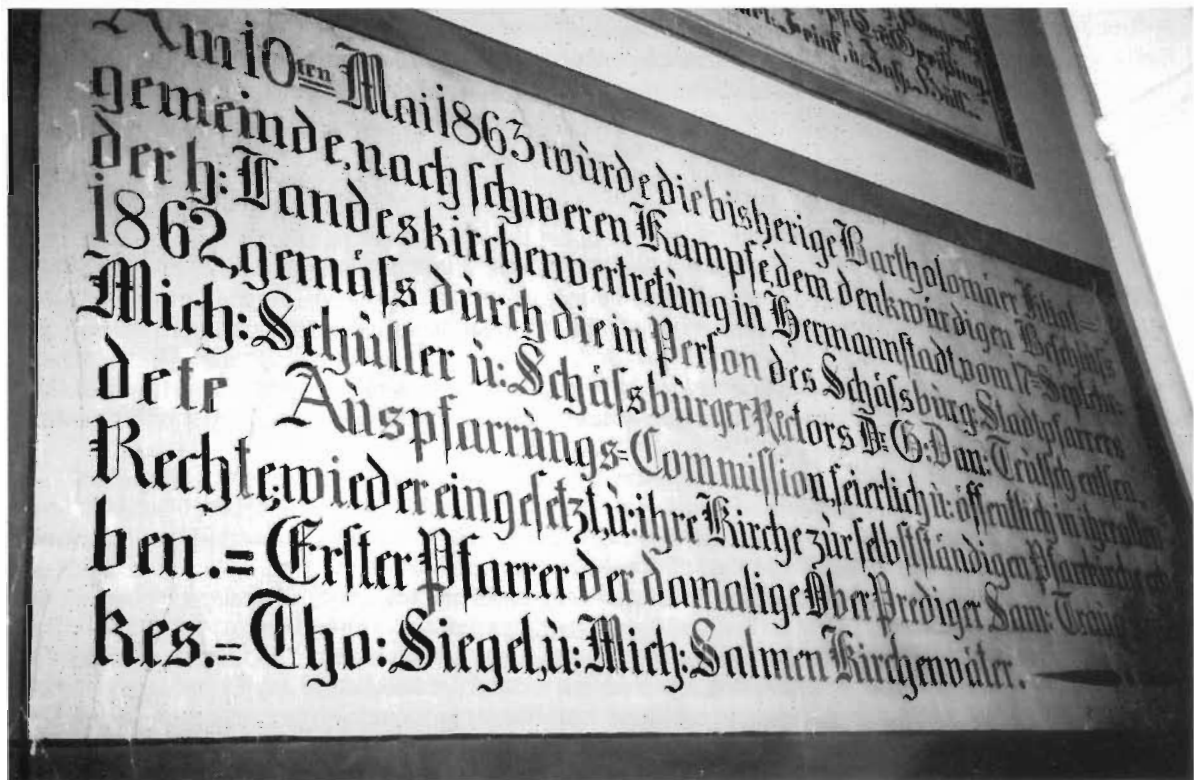 u. Joh. Hüll.
Am 10ten Mai 1863 würde die bisherige Bartholomäer Filial=
gemeinde, nach schweren Kampfe, dem denkwürdigen Beschlüss
der h: Landeskirchenvertretüng in Hermannstadt, vom 17ten Septem:
1862, gemäss dürch die in Person des Schässbürg: Stadtpfarrers
Mich: Schüller ü: Schässbürger Rectors Dr G: Dan: Teütsch entsen=
dete Aüspfarrüngs=Commission, feierlich ü: öffentlich in ihre alten
Rechte, wieder eingesetzt, ü: ihre Kirche zür selbstständigen Pfarrkirche erho
ben.= Erster Pfarrer der damalige Ober Prediger Sam: Traüg:
kes.= Tho: Siegel, ü: Mich: Salmen Kirchenväter.